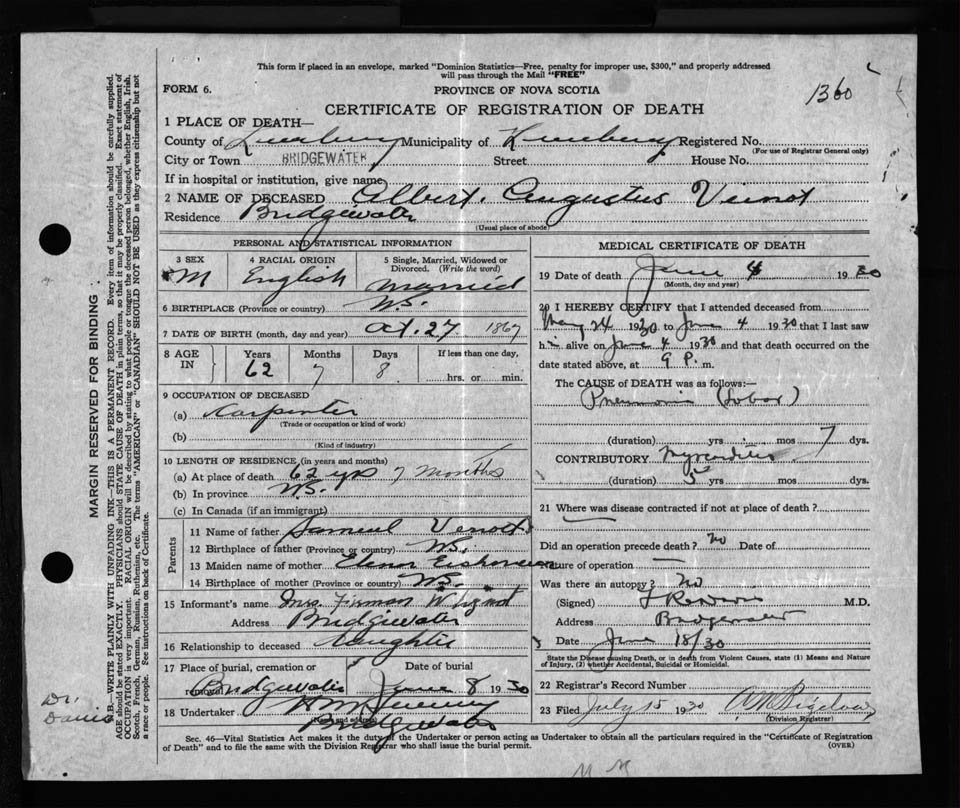 This form if placed in an envelope, marked "Dominion Statistics—Free, penalty for improper use, $300," and properly addressed
will pass through the Mail "FREE"
FORM 6.
PROVINCE OF NOVA SCOTIA
1360
CERTIFICATE OF REGISTRATION OF DEATH
1 PLACE OF DEATH—
County of Lunenburg Municipality of Lunenburg Registered No.
(For use of Registrar General only)
City or Town BRIDGEWATER Street House No.
If in hospital or institution, give name
2 NAME OF DECEASED Albert. Augustus Veinot
Residence Bridgewater
(Usual place of abode)
PERSONAL AND STATISTICAL INFORMATION
3 SEX
M
4 RACIAL ORIGIN
English
5 Single, Married, Widowed or
Divorced. (Write the word)
Married
6 BIRTHPLACE (Province or country) N.S.
7 DATE OF BIRTH (month, day and year) Oct. 27 1867
8 AGE
IN
Years
62
Months
7
Days
8
If less than one day,
hrs. or min.
9 OCCUPATION OF DECEASED
(a) Carpenter
(Trade or occupation or kind of work)
(b)
(Kind of industry)
10 LENGTH OF RESIDENCE (in years and months)
(a) At place of death 62 yrs 7 Months
(b) In province N.S.
(c) In Canada (if an immigrant)
Parents
11 Name of father Samuel
12 Birthplace of father (Province or country) N.S.
13 Maiden name of mother
14 Birthplace of mother (Province or country) N.S.
15 Informant's name Mrs.
Address Bridgewater
16 Relationship to deceased daughter
17 Place of burial, cremation or
removal
Bridgewater
Date of burial
June 8 1930
18 Undertaker
(Name and address)
Bridgewater
MEDICAL CERTIFICATE OF DEATH
19 Date of death June 4 1930
(Month, day and year)
20 I HEREBY CERTIFY that I attended deceased from
May 24 1930 to June 4 1930 that I last saw
him alive on June 4 1930 and that death occurred on the
date stated above, at 9 P. m.
The CAUSE of DEATH was as follows:—
Pneumonia (Lobar)
(duration) yrs mos 7 dys.
CONTRIBUTORY Myocarditis
(duration) 5 yrs mos dys.
21 Where was disease contracted if not at place of death?
Did an operation precede death? No Date of
Nature of operation —
Was there an autopsy? No
(Signed) M.D.
Address Bridgewater
Date June 18/30
State the Disease causing Death, or in death from Violent Causes, state (1) Means and Nature
of Injury, (2) whether Accidental, Suicidal or Homicidal.
22 Registrar's Record Number
23 Filed July 15 1930
(Division Registrar)
Sec. 46—Vital Statistics Act makes it the duty of the Undertaker or person acting as Undertaker to obtain all the particulars required in the "Certificate of Registration
of Death" and to file the same with the Division Registrar who shall issue the burial permit.
(OVER)
MARGIN RESERVED FOR BINDING
N.B.—WRITE PLAINLY WITH UNFADING INK—THIS IS A PERMANENT RECORD. Every item of information should be carefully supplied.
AGE should be stated EXACTLY. PHYSICIANS should STATE CAUSE OF DEATH in plain terms, so that it may be properly classified. Exact statement of
OCCUPATION is very important. RACIAL ORIGIN will be described by stating to what people or tongue the deceased person belonged, whether English, Irish,
Scotch, French, German, Russian, Ruthenian, etc. The terms "AMERICAN" or "CANADIAN" SHOULD NOT BE USED as they express citizenship but not
a race or people. See instructions on back of Certificate.
Dr.
Davis